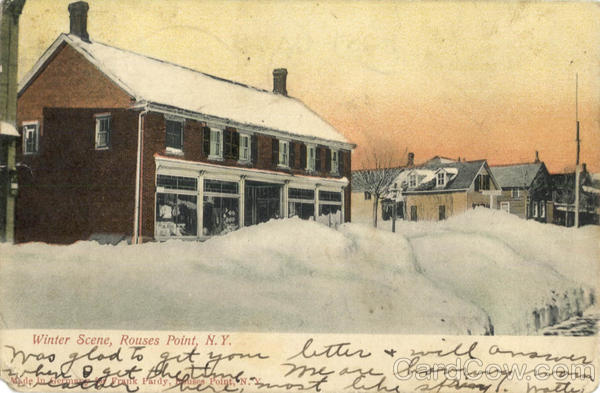 Winter Scene, Rouses Point, N.Y.
Was glad to get your letter + will answer
when I get the time. We are having
Made in Germany for Frank Pardy, Rouses Point, N.Y.
weather here, most like spring.
CardCow.com